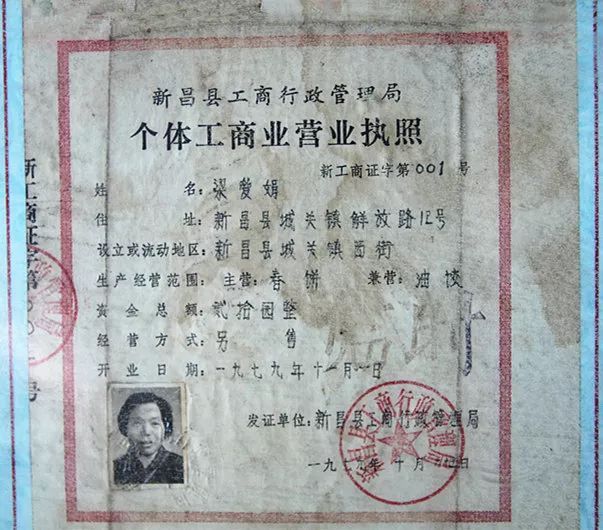 新昌县工商行政管理局
个体工商业营业执照
新工商证字第001号
姓 名：梁爱娟
住 址：新昌县城关镇解放路12号
设立或流动地区：新昌县城关镇西街
生产经营范围：主营：春饼 兼营：油
资金总额：贰拾园整
经营方式：另售
开业日期：一九七九年十一月一日
发证单位：新昌县工商行政管理局
一九七九年十月 日
新工商证字第 号